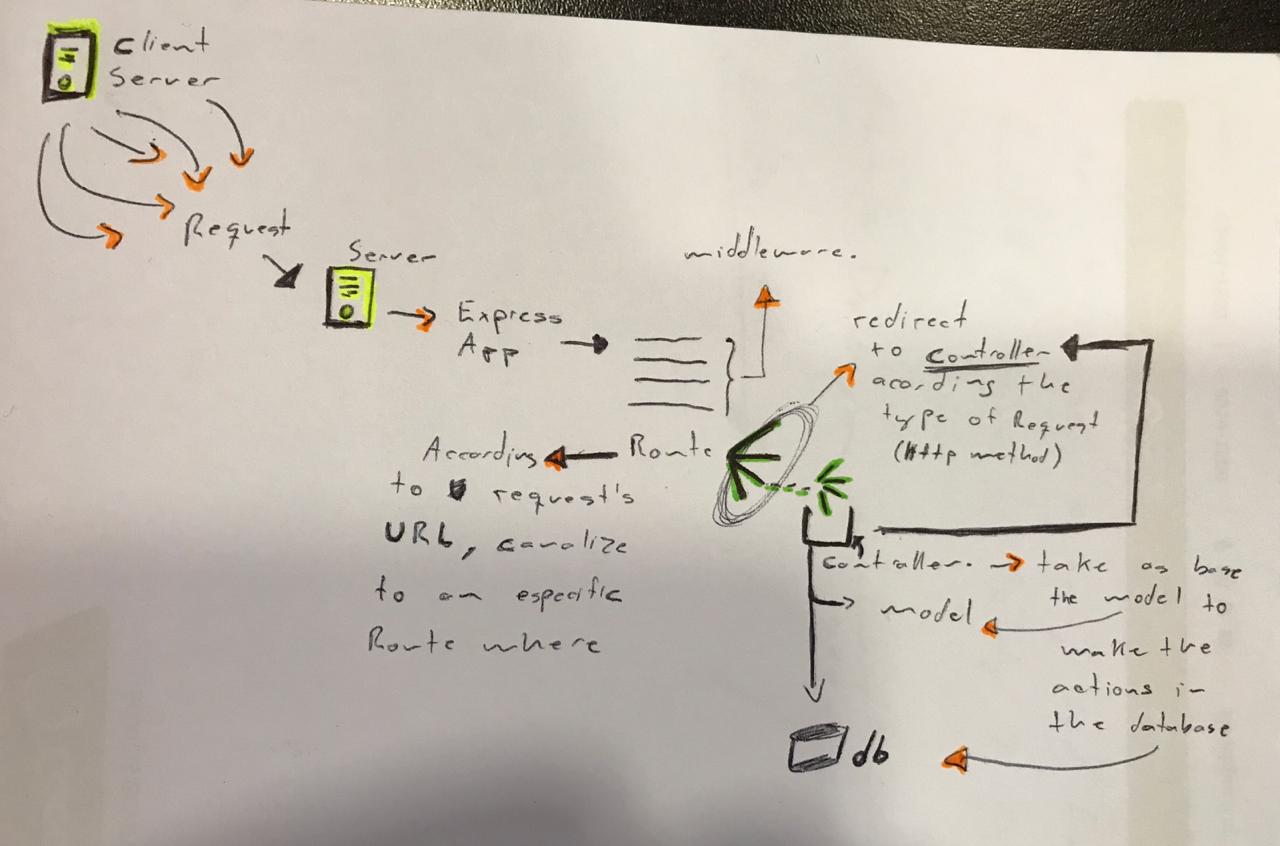 Client
Server
Request
Server
Express
App
middleware.
redirect
to Controller
acording the
type of Request
(Http method)
Route
According
to request's
URL, canalize
to an especific
Route where
controller.
take as base
the model to
make the
actions in
the database
model
db